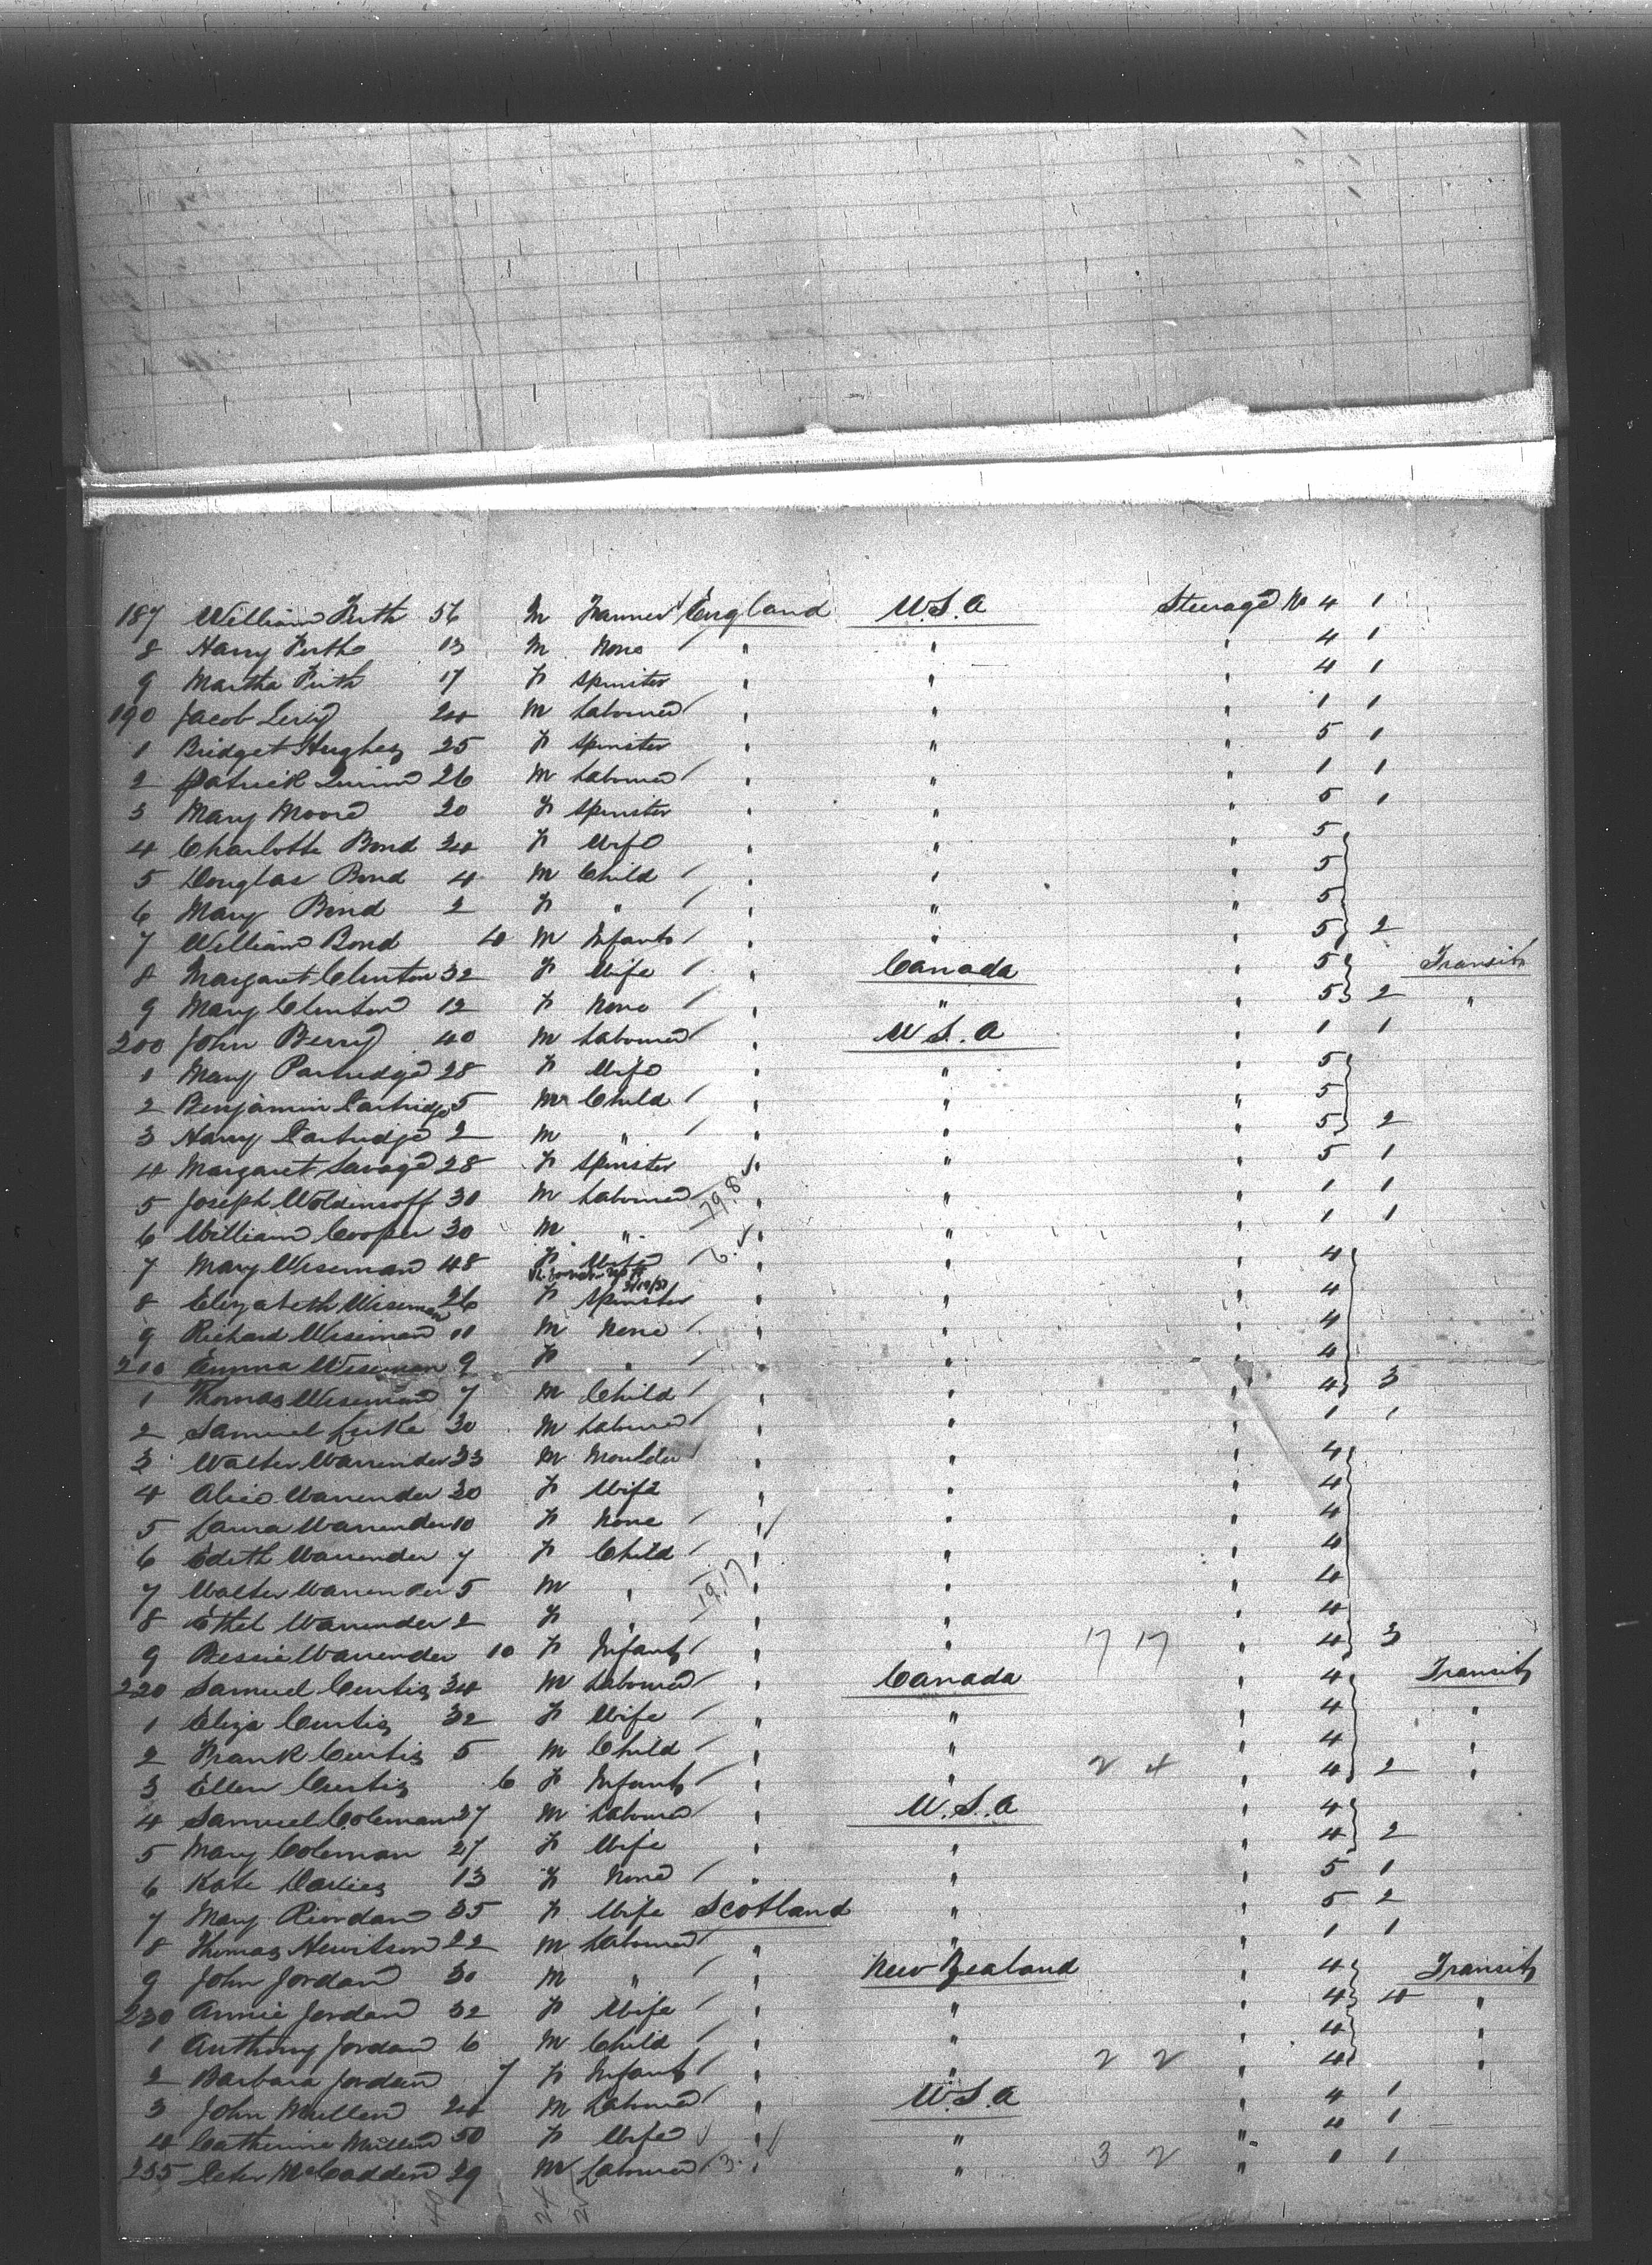 187 William Firth 56 M Farmer England U.S.A Steerage 4 1
8 Harry Firth 13 M None " " " 4 1
9 Martha Firth 17 F Spinster " " " 4 1
190 Jacob 24 M Labourer " " " 1 1
1 Bridget Hughes 25 F Spinster " " " 5 1
2 Patrick Quinn 26 M Labourer " " " 1 1
3 Mary Moore 20 F Spinster " " " 5 1
4 Charlotte Bond 24 F Wife " " " 5
5 Douglas Bond 4 M Child " " " 5
6 Mary Bond 2 F " " " " 5
7 William Bond 10 M Infant " " " 5 2
8 Margaret Clinton 32 F Wife " Canada " 5 Transit
9 Mary Clinton 12 F None " " " 5 2 "
200 John Berry 40 M Labourer " U.S.A " 1 1
1 Mary Partridge 28 F Wife " " " 5
2 Benjamin Partridge 5 M Child " " " 5
3 Harry Partridge 2 M " " " " 5 2
4 Margaret Savage 28 F Spinster " " " 5 1
5 Joseph Woldinsoff 30 M Labourer " " " 1 1
6 William Cooper 30 M " " " " 1 1
7 Mary Wiseman 48 F Wife " " " 4
8 Elizabeth Wiseman 26 F Spinster " " " 4
9 Richard Wiseman 11 M None " " " 4
210 Emma Wiseman 9 F " " " " 4
1 Thomas Wiseman 7 M Child " " " 4 3
2 Samuel Luke 30 M Labourer " " " 1 1
3 Walter Warrender 33 M Moulder " " " 4
4 Alice Warrender 30 F Wife " " " 4
5 Laura Warrender 10 F None " " " 4
6 Edith Warrender 7 F Child " " " 4
7 Walter Warrender 5 M " " " " 4
8 Ethel Warrender 2 F " " " " 4
9 Bessie Warrender 10 F Infant " " 17 17 " 4 3
220 Samuel Curtis 34 M Labourer " Canada " 4 Transit
1 Eliza Curtis 32 F Wife " " " 4 "
2 Frank Curtis 5 M Child " " " 4 "
3 Ellen Curtis 6 F Infant " " 2 4 " 4 2 "
4 Samuel Coleman 27 M Labourer " U.S.A " 4
5 Mary Coleman 27 F Wife " " " 4 2
6 Kate Davies 13 F None " " " 5 1
7 Mary Riordan 35 F Wife Scotland " " 5 2
8 Thomas Hewitson 22 M Labourer " " " 1 1
9 John Jordan 30 M " " New Zealand " 4 Transit
230 Annie Jordan 32 F Wife " " " 4 4 "
1 Anthony Jordan 6 M Child " " " 4 "
2 Barbara Jordan 7 F Infant " " 2 2 " 4 "
3 John Mullen 24 M Labourer " U.S.A " 4 1
4 Catherine Mullen 50 F Wife " " " 4 1
235 Peter McCadden 29 M Labourer " " 3 2 " 1 1